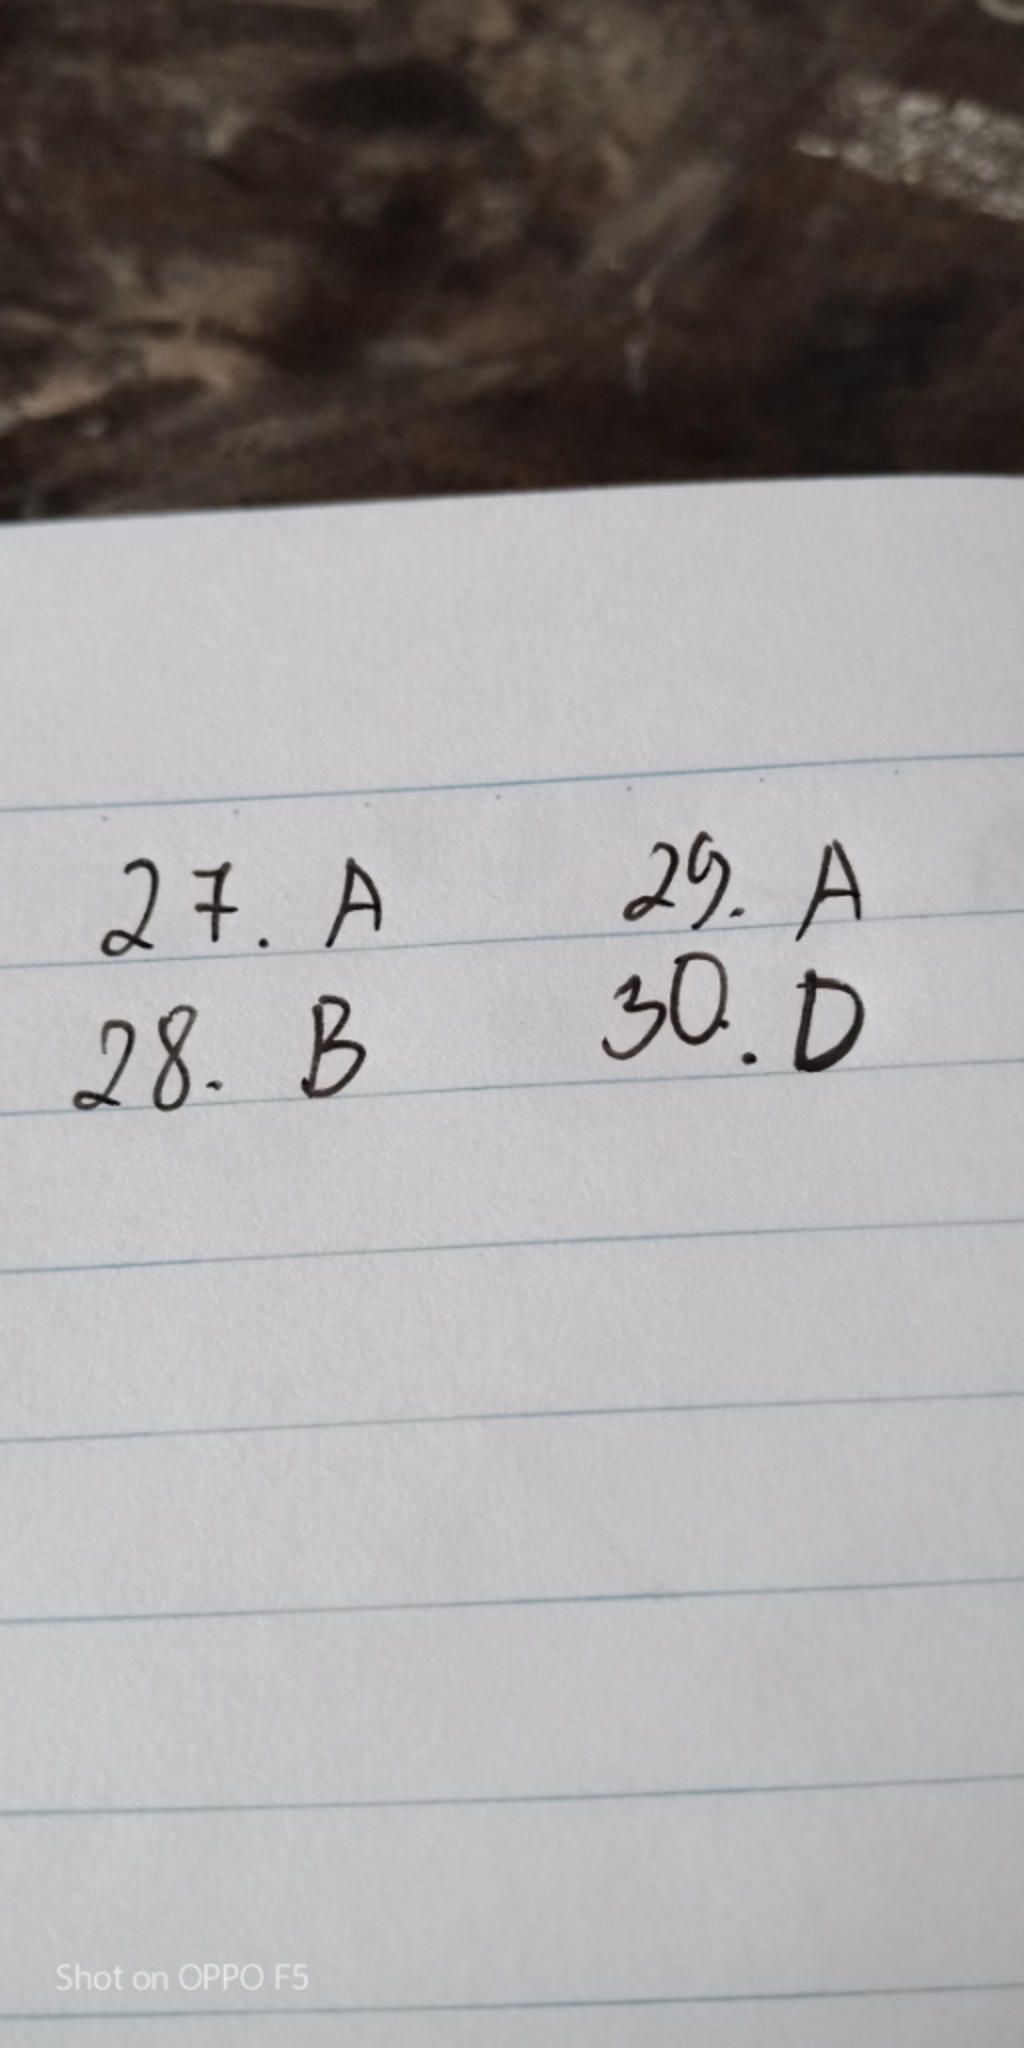 27. A
28. B
29. A
30. D
Shot on OPPO F5